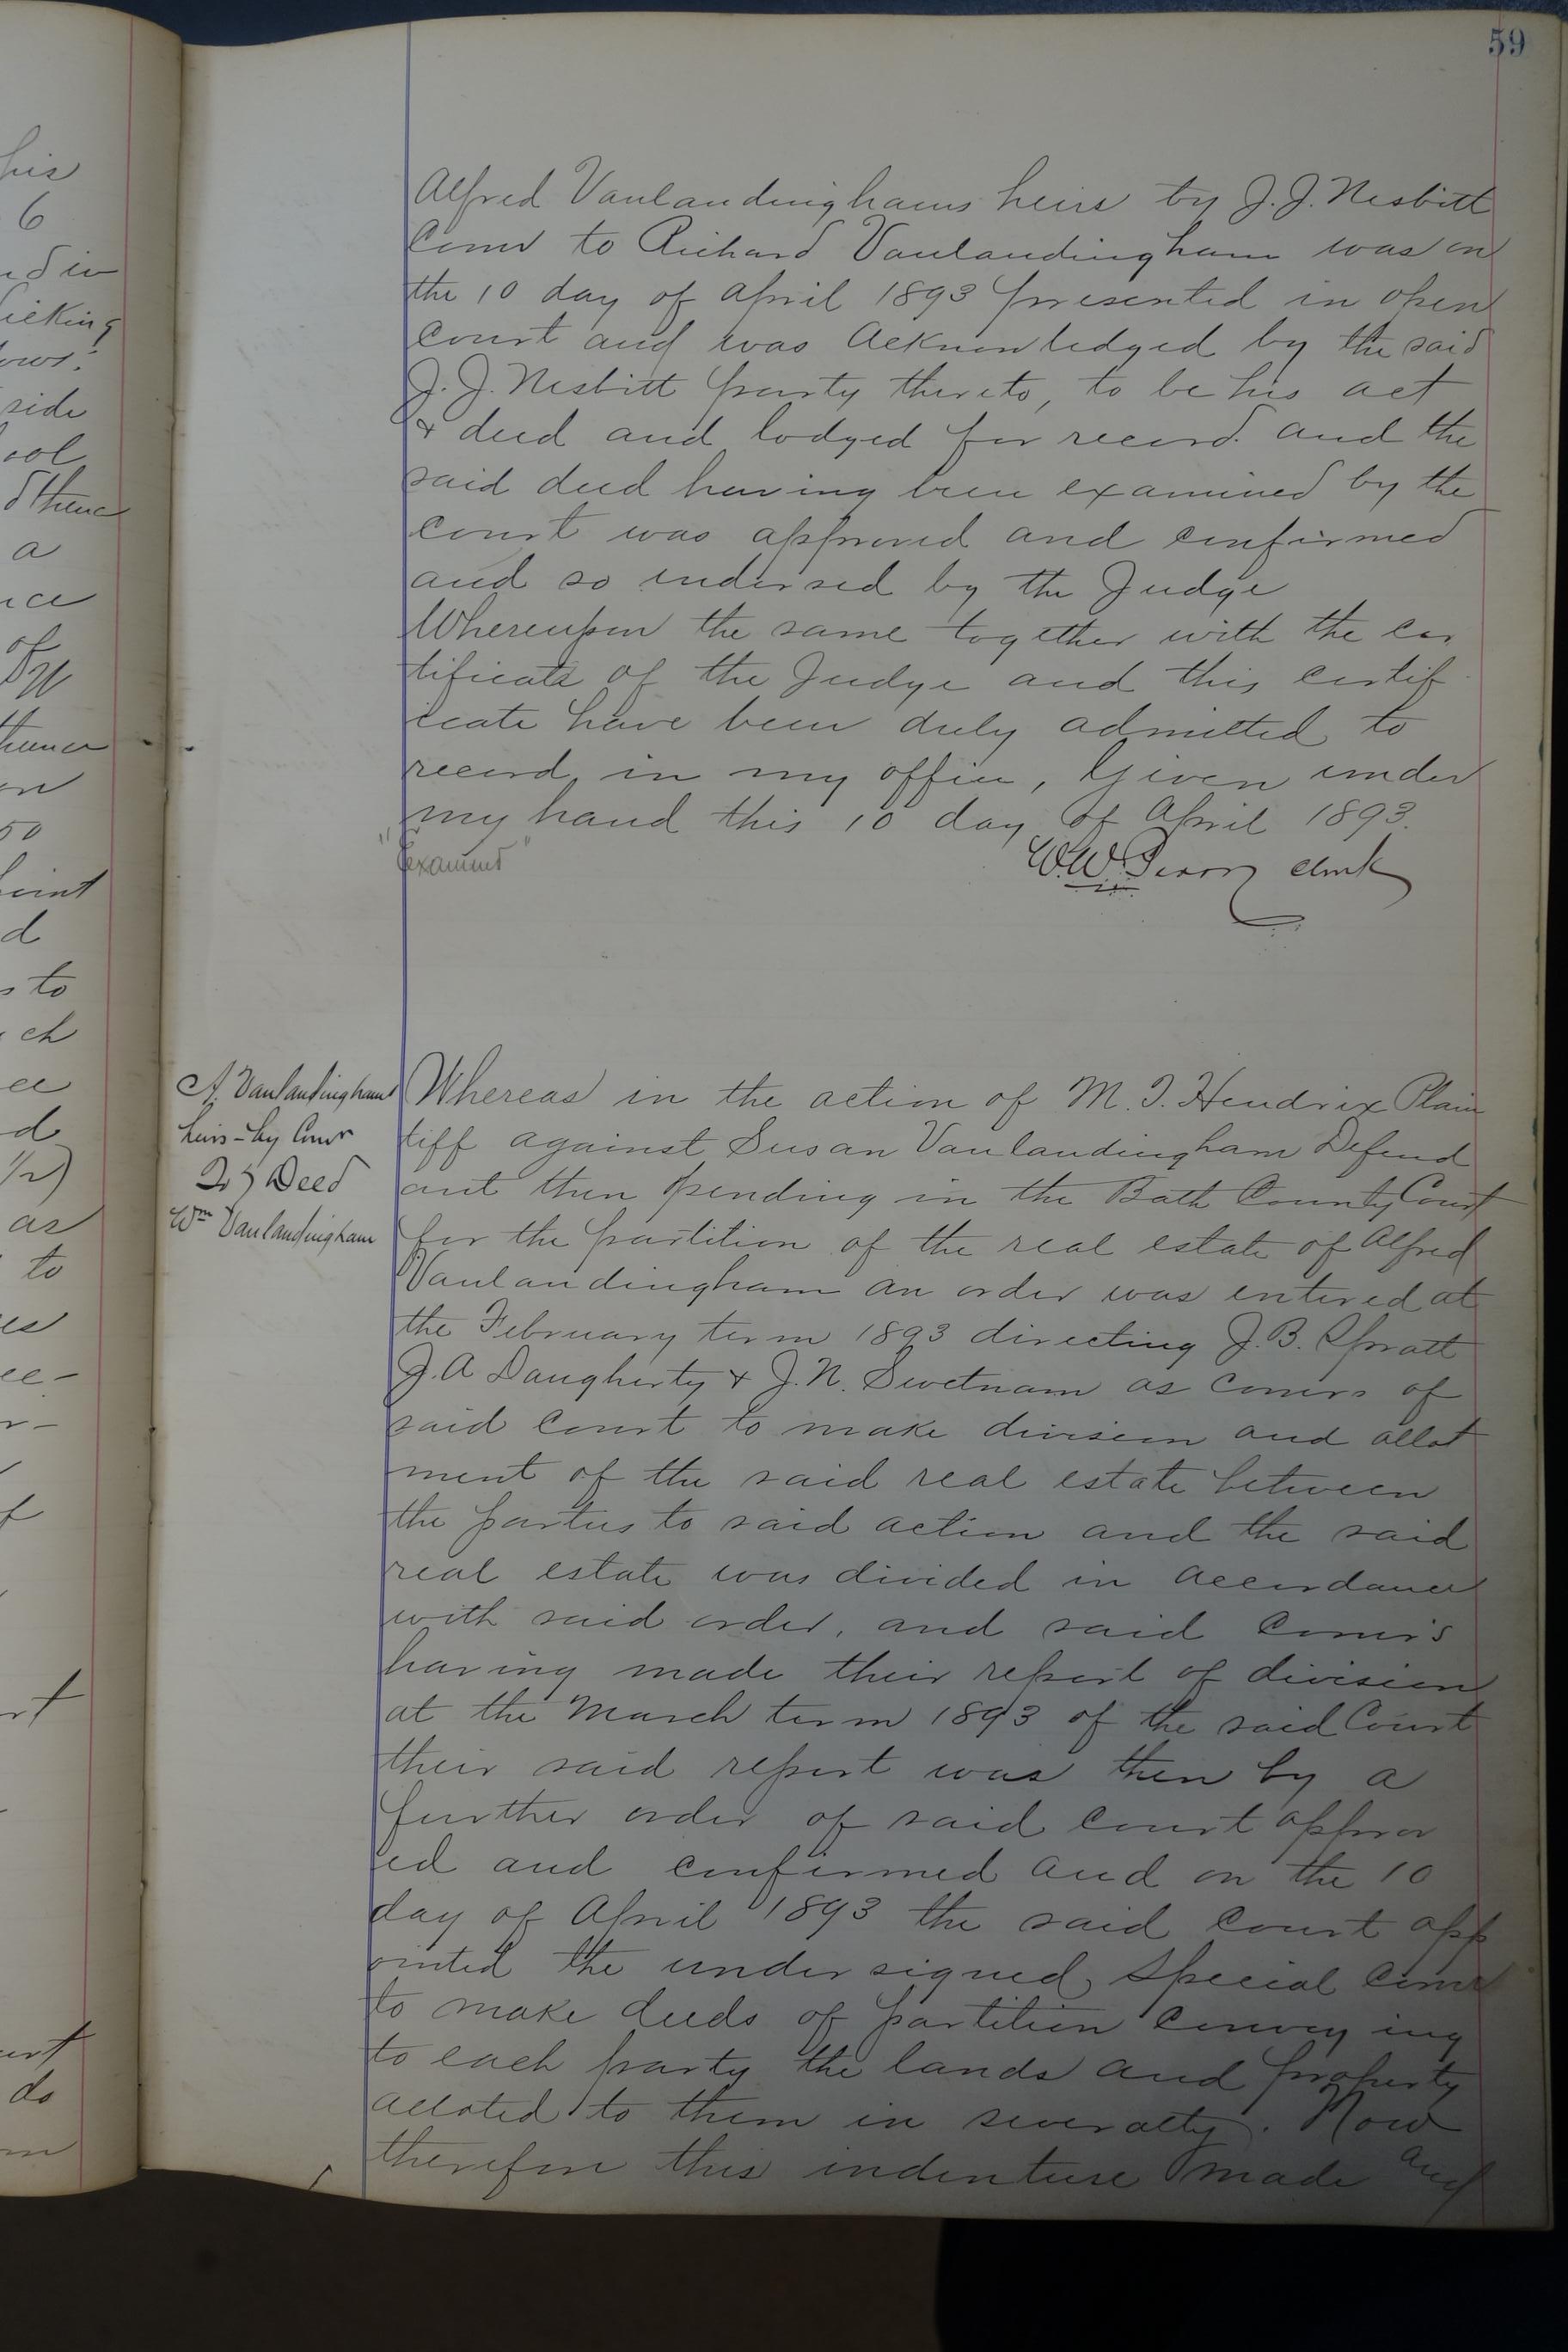 59
Alfred Vanlandinghams heirs by J. J. Nesbitt
Comr to Richard Vanlandingham was on
the 10 day of April 1893 presented in open
court and was acknowledged by the said
J. J. Nesbitt party thereto, to be his act
& deed and lodged for record. and the
said deed having been examined by the
court was approved and confirmed
and so indorsed by the Judge
Whereupon the same together with the cer
tificate of the Judge and this certif
icate have been duly admitted to
record in my office, Given under
my hand this 10 day of April 1893.
"Examined"
W. W. clerk
A. Vanlandinghams
heirs - by Comr
To } Deed
Wm Vanlandingham
Whereas in the action of M. T. Hendrix Plain
tiff against Susan Vanlandingham Defend
ant then pending in the Bath County Court
for the partition of the real estate of Alfred
Vanlandingham an order was entered at
the February term 1893 directing J. B. Spratt
J. A Daugherty & J. N. Swetnam as Comrs of
said Court to make division and allot
ment of the said real estate between
the parties to said action and the said
real estate was divided in accordance
with said order, and said Comr's
having made their report of division
at the March term 1893 of the said Court
their said report was then by a
further order of said court approv
ed and confirmed and on the 10
day of April 1893 the said court app
ointed the undersigned Special Comr
to make deeds of partition conveying
to each party the lands and property
alloted to them in severalty. Now
therefore this indenture made and
his
6
side
thence
a
of
50
d
to
ch
as
to
do